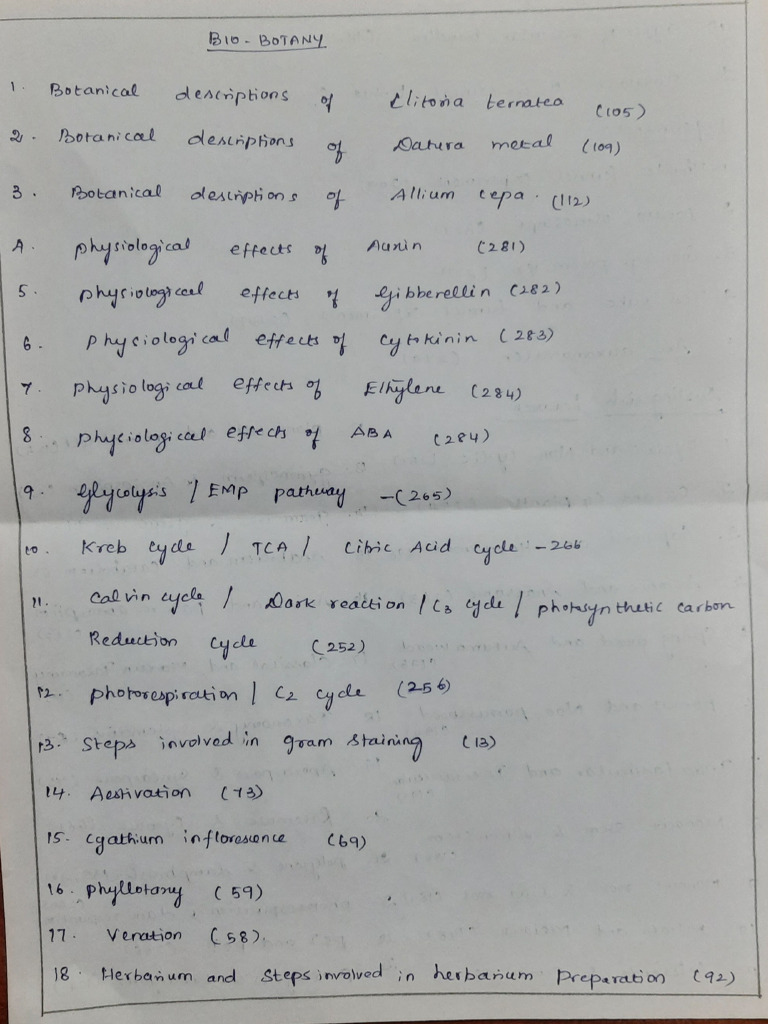 BIO - BOTANY
1. Botanical descriptions of Clitoria ternatea (105)
2. Botanical descriptions of Datura metal (109)
3. Botanical descriptions of Allium cepa. (112)
4. physiological effects of Auxin (281)
5. physiological effects of Gibberellin (282)
6. physiological effects of Cytokinin (283)
7. physiological effects of Ethylene (284)
8. physiological effects of ABA (284)
9. Glycolysis / EMP pathway -(265)
10. Kreb cycle / TCA / Citric Acid cycle - 266
11. Calvin cycle / Dark reaction / C3 cycle / photosynthetic carbon
Reduction cycle (252)
12. photorespiration / C2 cycle (256)
13. Steps involved in gram staining (13)
14. Aestivation (73)
15. Cyathium inflorescence (69)
16. phyllotaxy (59)
17. Venation (58).
18. Herbarium and Steps involved in herbarium Preparation (92)